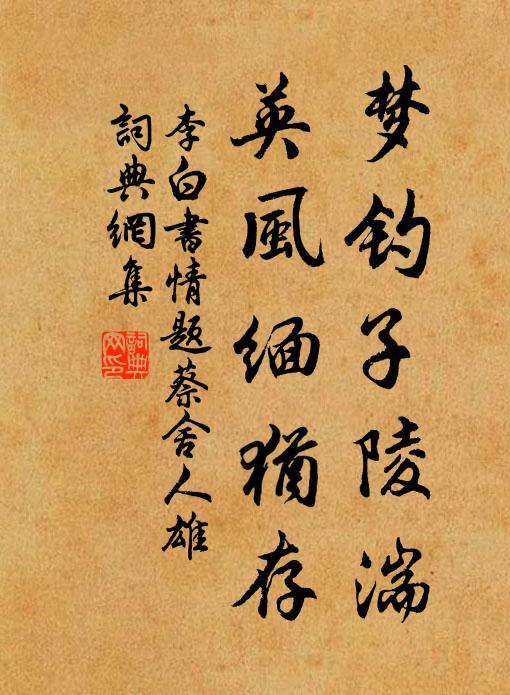 梦钓子陵湍
英風缅猶存
李白書情题蔡舍人雄
詞典網集
詞典
网印